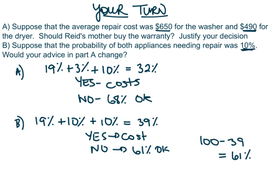 YOUR TURN
A) Suppose that the average repair cost was $650 for the washer and $490 for
the dryer. Should Reid's mother buy the warranty? Justify your decision
B) Suppose that the probability of both appliances needing repair was 10%.
Would your advice in part A change?
A) 19% + 3% + 10% = 32%
YES - COSTS
NO - 68% OK
B) 19% + 10% + 10% = 39%
YES → COST
NO → 61% OK
100 - 39
= 61%